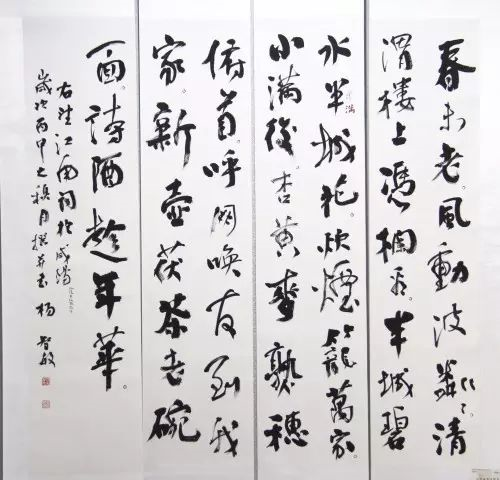 春未老。風動波粼〻清
渭樓上憑欄看。半城碧
水半城花。炊煙籠萬家。
小滿後。杏黄麥熟穗
俯首。呼閨喚友到我
家。新壺茯茶老碗
面。詩酒趁年華。
右望江南詞於咸陽
歲於丙申之穐月撰并書 楊智敏